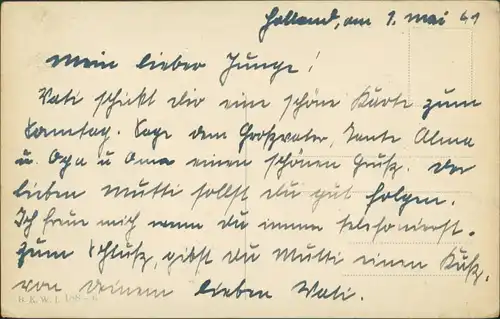 Holland, am 1. Mai 41
Mein lieber Junge!
Vati schickt dir eine schöne Karte zum
Samstag. Sage dem Großvater, Tante Alma
u. Opa u Oma einen schönen Gruß. Der
lieben Mutti sollst du gut folgen.
Ich freue mich wenn du immer telefonierst.
Zum Schluß, gibst du Mutti einen Kuß,
von deinem lieben Vati.
B.K.W.I.